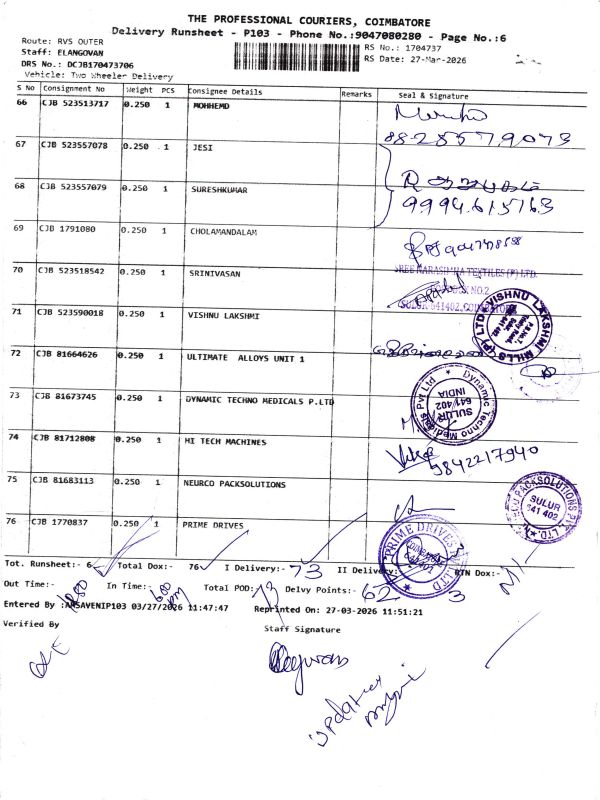 THE PROFESSIONAL COURIERS, COIMBATORE
Delivery Runsheet - P103 - Phone No.:9047080280 - Page No.:6
Route: RVS OUTER
RS No.: 1704737
Staff: ELANGOVAN
RS Date: 27-Mar-2026
DRS No.: DCJB170473706
Vehicle: Two Wheeler Delivery
S No Consignment No Weight PCS Consignee Details Remarks Seal & Signature
66 CJB 523513717 0.250 1 MOHHEMD
8828579073
67 CJB 523557078 0.250 1 JESI
68 CJB 523557079 0.250 1 SURESHKUMAR
9994615163
69 CJB 1791080 0.250 1 CHOLAMANDALAM
70 CJB 523518542 0.250 1 SRINIVASAN
SREE NARASIMHA TEXTILES (P) LTD.
SULUR 641402, COIMBATORE
71 CJB 523590018 0.250 1 VISHNU LAKSHMI
VISHNU LAKSHMI MILLS (P) LTD
72 CJB 81664626 0.250 1 ULTIMATE ALLOYS UNIT 1
73 CJB 81673745 0.250 1 DYNAMIC TECHNO MEDICALS P.LTD
Dynamic Techno Medicals Pvt Ltd
SULUR
641 402
INDIA
74 CJB 81712808 0.250 1 HI TECH MACHINES
9842217940
75 CJB 81683113 0.250 1 NEURCO PACKSOLUTIONS
PACKSOLUTIONS PVT. LTD.
SULUR
641 402
76 CJB 1770837 0.250 1 PRIME DRIVES
PRIME DRIVES
Tot. Runsheet:- 6 Total Dox:- 76 I Delivery:- 73 II Delivery:- RTN Dox:-
Out Time:- In Time:- 600 pm Total POD: 73 Delvy Points:- 62 3
Entered By :ANSAVENIP103 03/27/2026 11:47:47 Reprinted On: 27-03-2026 11:51:21
Verified By
Staff Signature